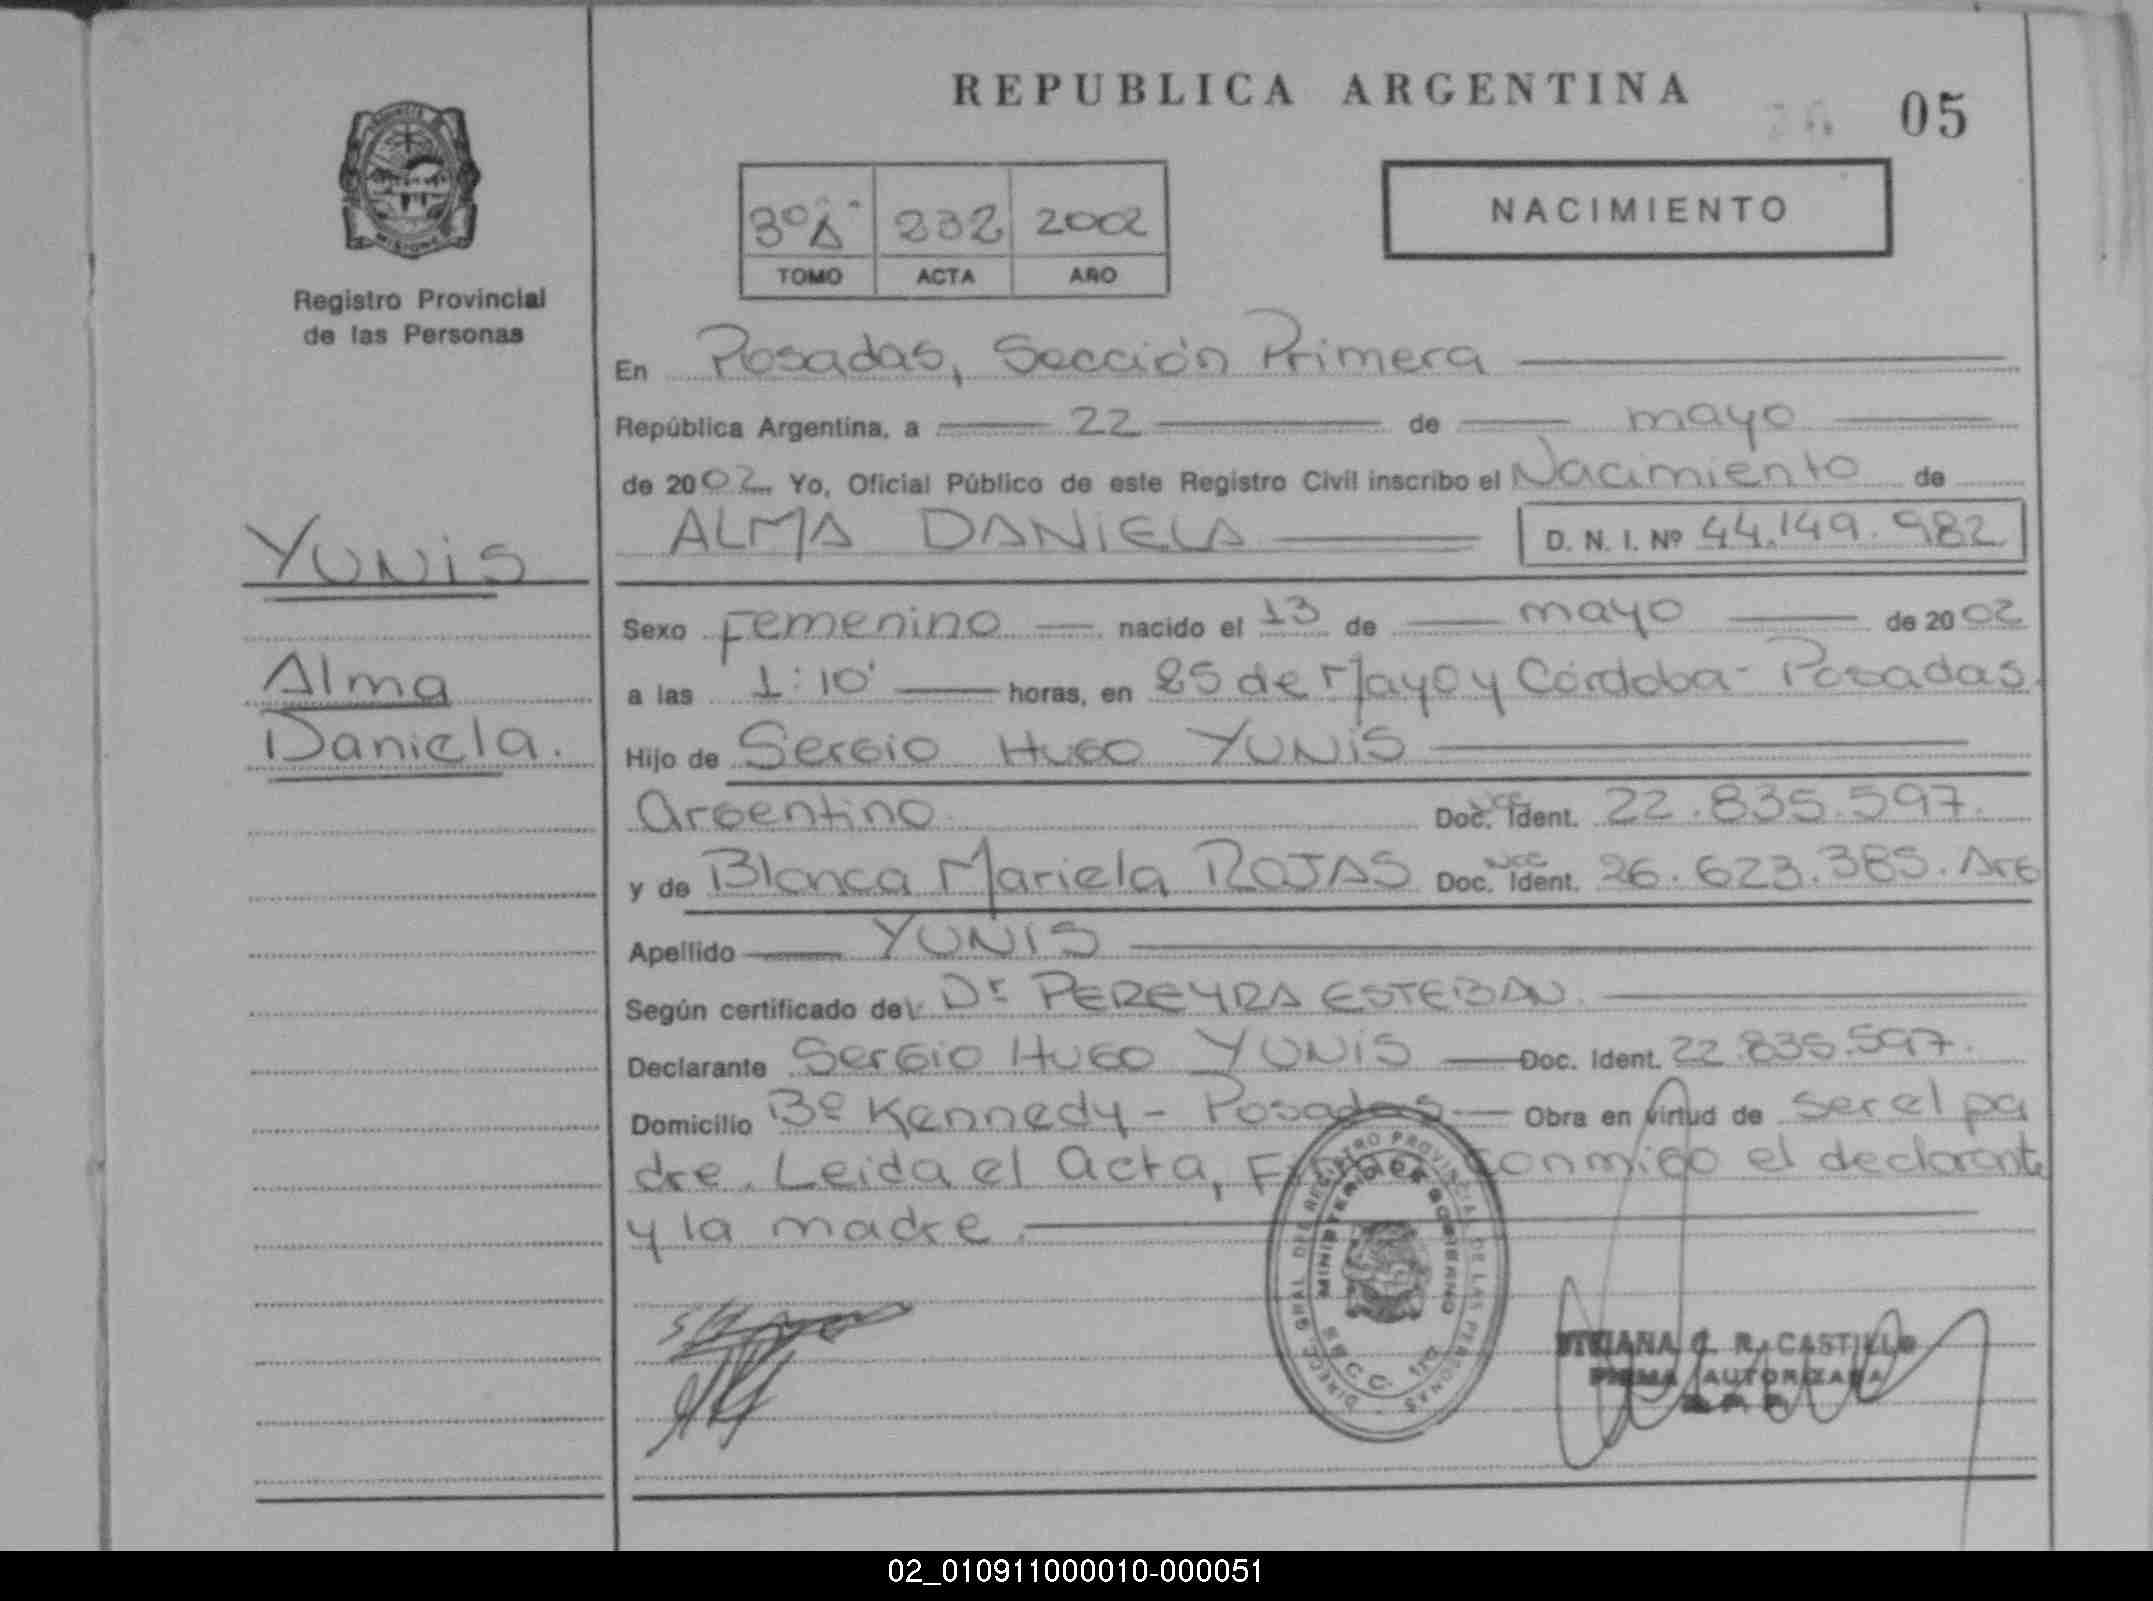 REPUBLICA ARGENTINA
05
NACIMIENTO
3ºA 232 2002
TOMO ACTA AÑO
Registro Provincial
de las Personas
YUNIS
Alma
Daniela.
En Posadas, Sección Primera
República Argentina, a 22 de mayo
de 2002 Yo, Oficial Público de este Registro Civil inscribo el Nacimiento de
ALMA DANIELA D. N. I. Nº 44.149.982
Sexo Femenino nacido el 13 de mayo de 2002
a las 1:10' horas, en 25 de Mayo y Córdoba - Posadas.
Hijo de Sergio Hugo YUNIS
Argentino Doc. Ident. 22.835.597.
y de Blanca Mariela ROJAS Doc. Ident. 26.623.385. Arg
Apellido YUNIS
Según certificado del Dr PEREYRA ESTEBAN.
Declarante Sergio Hugo YUNIS Doc. Ident. 22.835.597.
Domicilio Bº Kennedy - Posadas Obra en virtud de ser el pa
dre. Leida el Acta, conmigo el declarante
y la madre.
DIREC. GRAL. DE REGISTRO PROVINCIAL DE LAS PERSONAS
MINISTERIO DE GOBIERNO
SECC.
R. CASTILLO
FIRMA AUTORIZADA
02_010911000010-000051